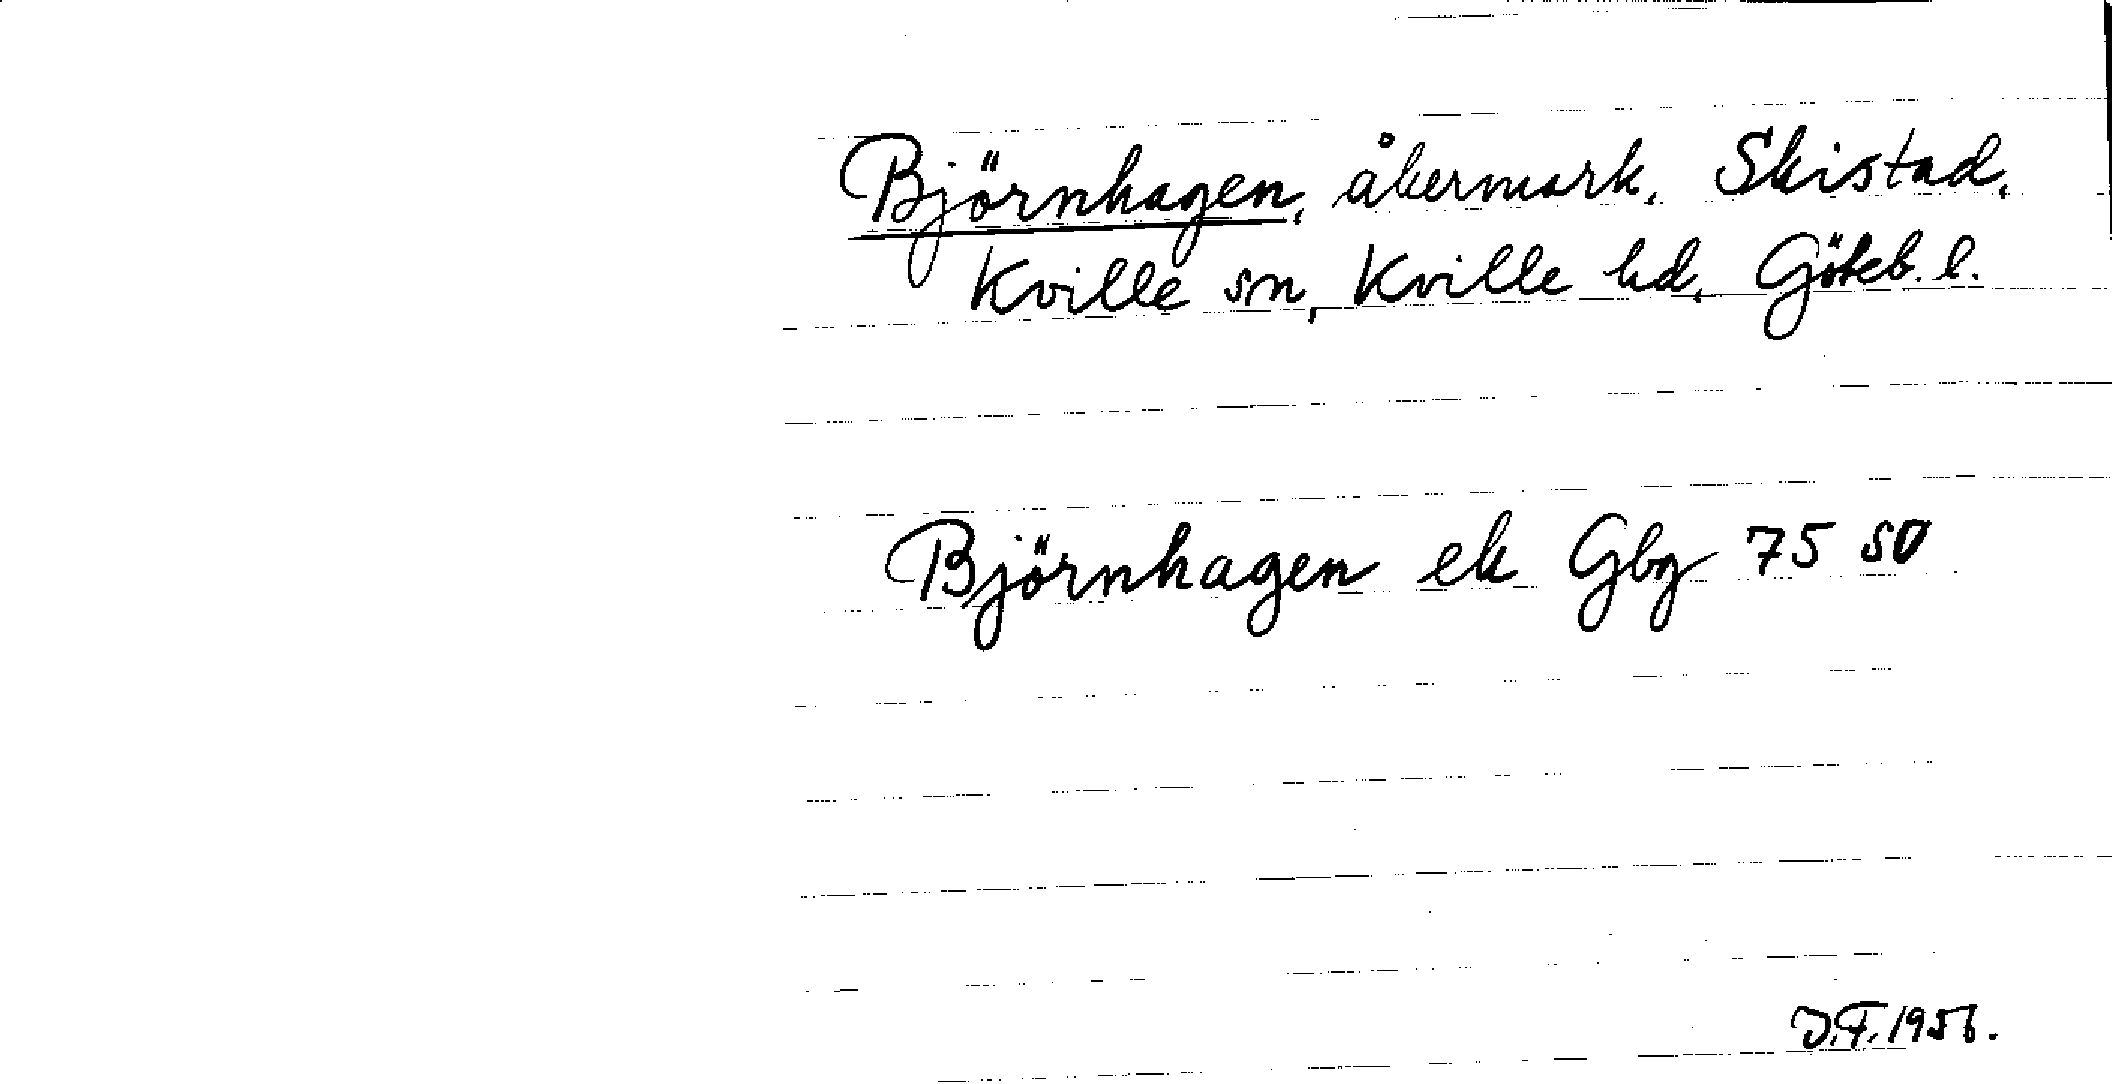 Björnhagen, åkermark, Skistad,
Kville sn, Kville hd, Göteb. l.
Björnhagen ek Gbg 75 SO
D.F. 1956.